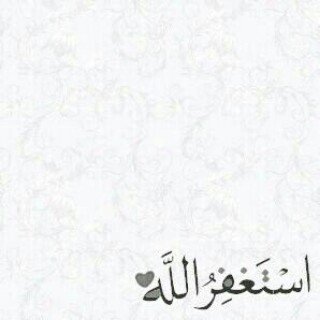 اسْتَغْفِرُاللَّه